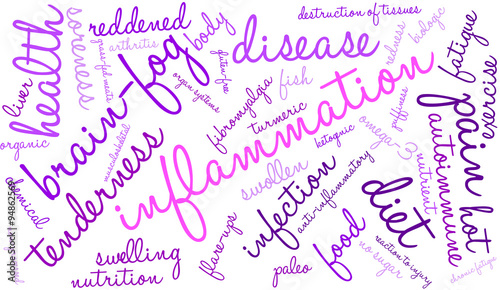 inflammation
brain-fog
tenderness
disease
pain
diet
health
infection
autoimmune
hot
soreness
reddened
arthritis
body
gluten-free
organ systems
destruction of tissues
redness
biologic
fatigue
exercise
liver
organic
musculoskeletal
fibromyalgia
fish
turmeric
ketogenic
omega-3
puffiness
nutrient
swollen
anti-inflammatory
flare-ups
food
no sugar
reaction to injury
chronic fatigue
paleo
swelling
nutrition
Adobe Stock